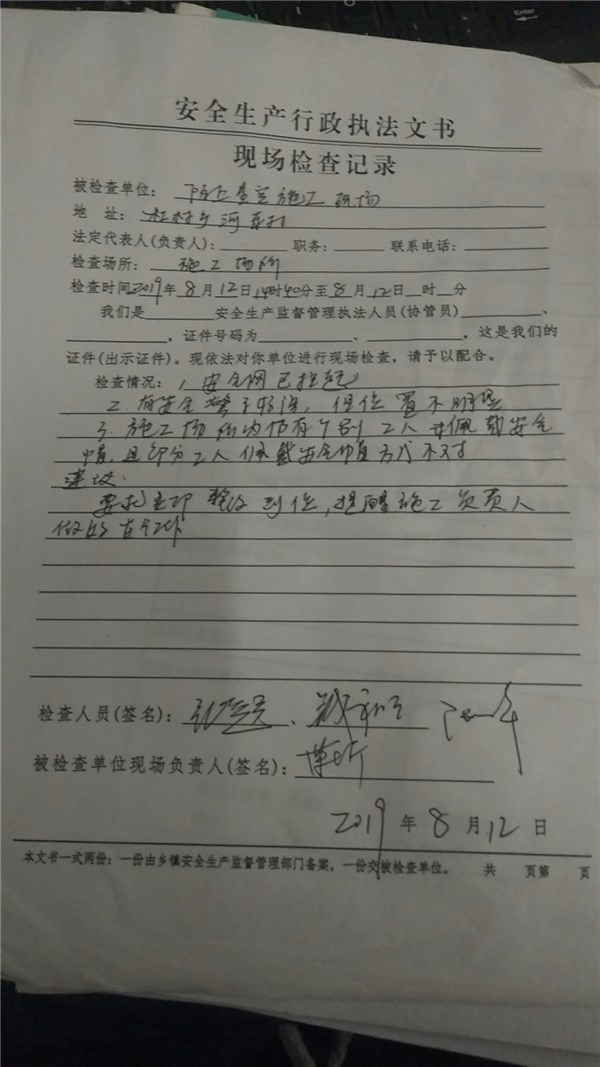 安全生产行政执法文书
现场检查记录
被检查单位: 施工现场
地 址: 杜村乡河东村
法定代表人(负责人): 职务: 联系电话:
检查场所: 施工场所
检查时间2019年8月12日14时40分至8月12日 时 分
我们是 安全生产监督管理执法人员(协管员) 、
,证件号码为 、 ,这是我们的
证件(出示证件)。现依法对你单位进行现场检查,请予以配合。
检查情况: 1.安全网已拉起
2.有安全警示标语,但位置不明显
3.施工场所内仍有个别工人未佩戴安全
帽,且部分工人佩戴安全帽方式不对
建议:
要求立即整改到位,提醒施工负责人
做好
检查人员(签名): 、
被检查单位现场负责人(签名):
2019年8月12日
本文书一式两份:一份由乡镇安全生产监督管理部门备案,一份交被检查单位。 共 页第 页